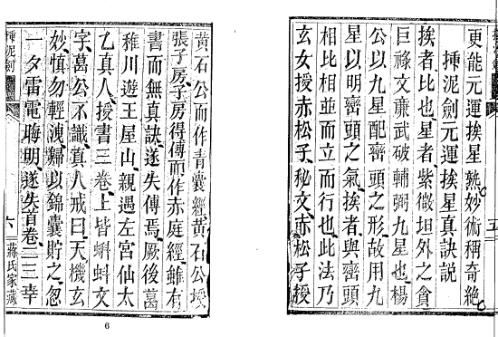 更能元運挨星熟妙術稱奇絶
挿泥劍元運挨星真訣説
挨者比也星者紫微垣外之貪
巨祿文廉武破輔弼九星也楊
公以九星配巒頭之形故用九
星以明巒頭之氣挨者與巒頭
相比相並而立而行也此法乃
玄女授赤松子秘文赤松子授
黄石公而作青囊經黄石公授
張子房子房得傳而作赤庭經雖有
書而無真訣遂失傳焉厥後葛
稚川遊王屋山親遇左宮仙太
乙真人授書三卷上皆蝌蚪文
字葛公不識真人戒曰天機玄
妙慎勿輕洩歸以錦囊貯之忽
一夕雷電晦明遂失首卷二三幸
挿泥劍
六
蔣氏家藏
6